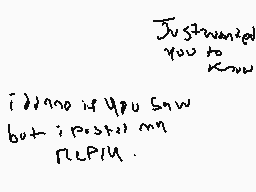 Just wanted
you to
know
i dunno if you saw
but i posted my
reply.